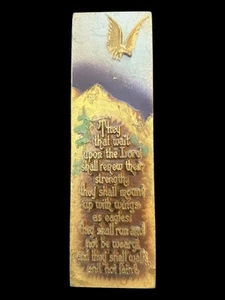 They
that wait
upon the Lord
shall renew their
strength;
they shall mount
up with wings
as eagles;
they shall run and
not be weary;
and they shall walk
and not faint.